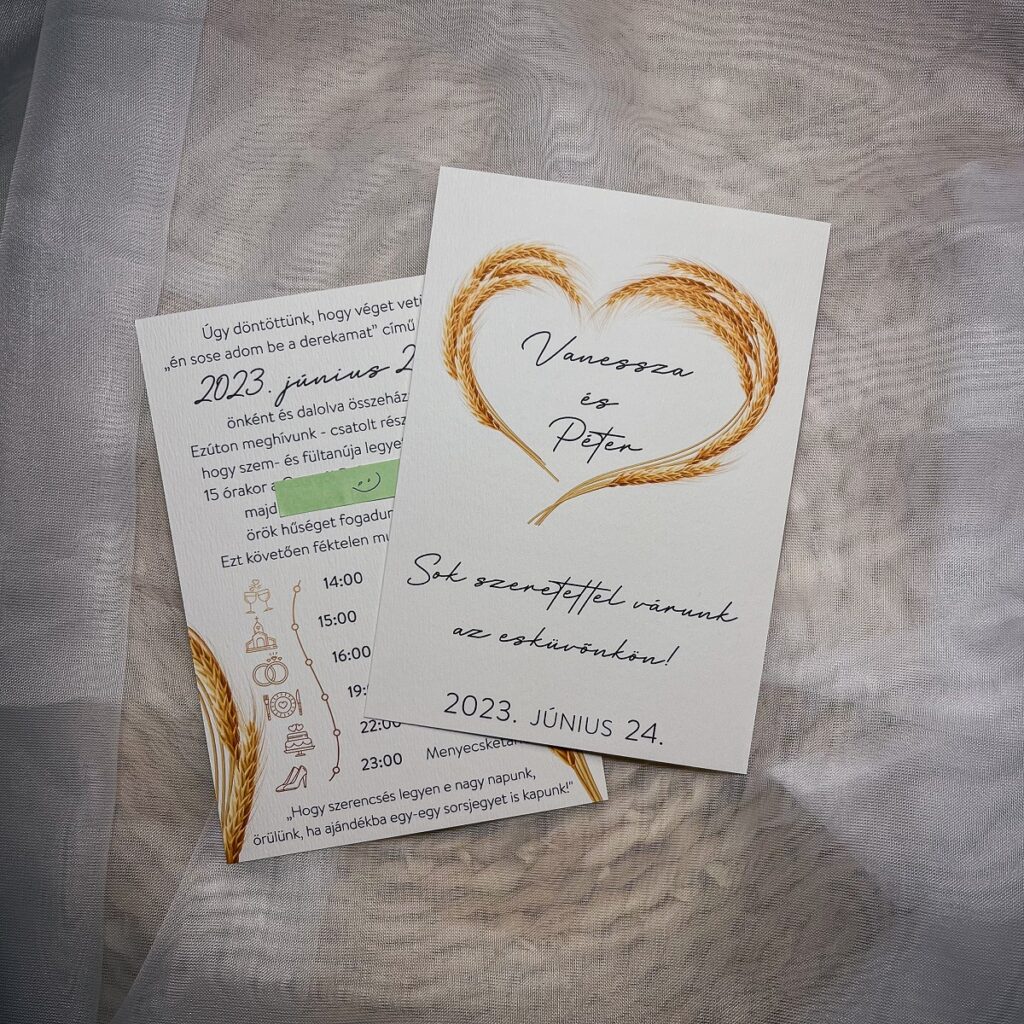 Úgy döntöttünk, hogy véget
„én sose adom be a derekamat” című
2023. június
önként és dalolva
Ezúton meghívunk - csatolt
hogy szem- és fültanúja
15 órakor
majd
örök hűséget
Ezt követően féktelen
14:00
15:00
16:00
22:00
23:00
„Hogy szerencsés legyen e nagy napunk,
örülünk, ha ajándékba egy-egy sorsjegyet is kapunk!”
Vanessza
és
Péter
Sok szeretettel várunk
az esküvőnkön!
2023. JÚNIUS 24.